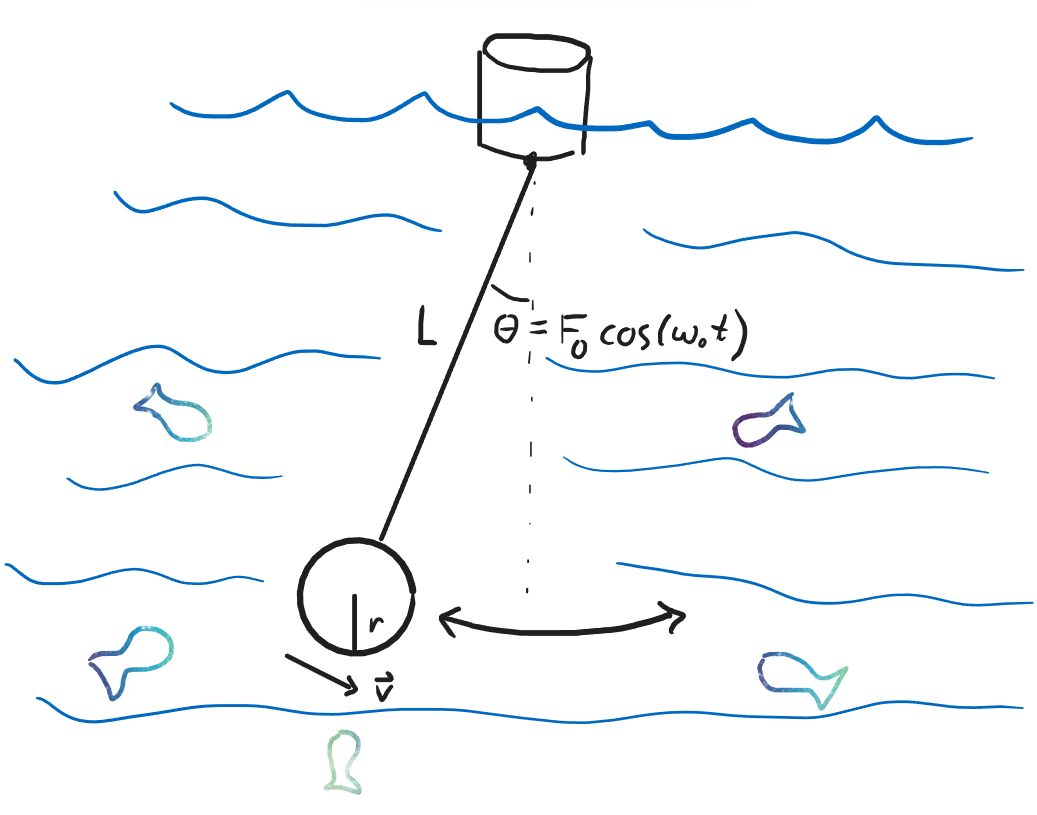 L
θ = F₀ cos(ω₀t)
r
v⃗